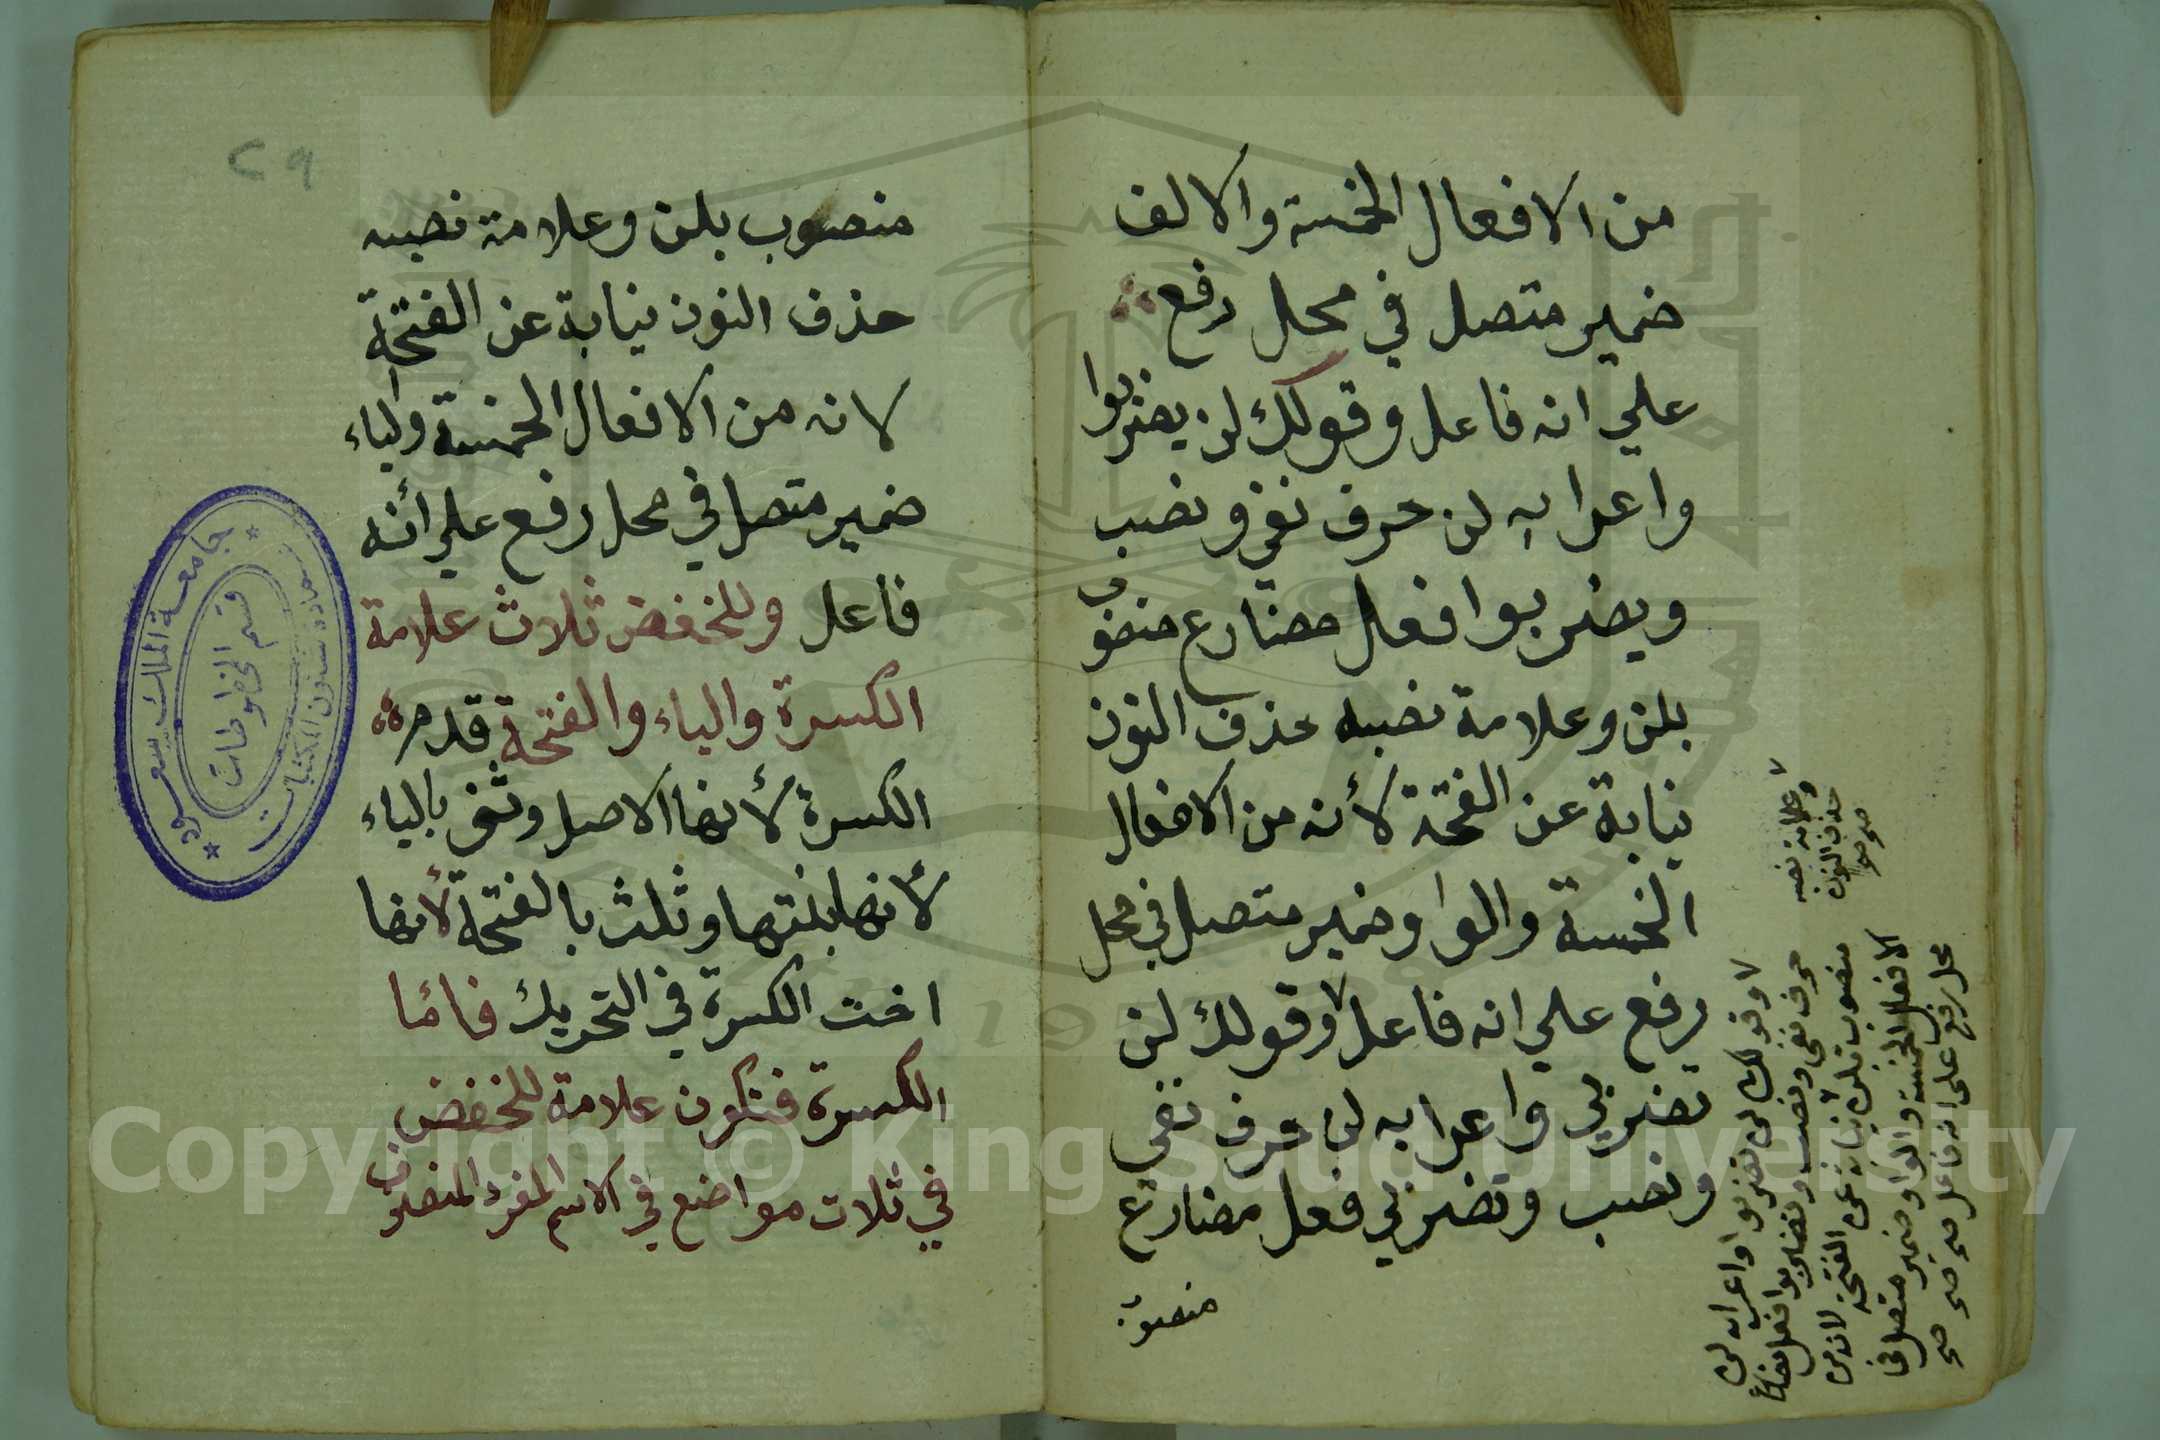 من الافعال الخمسة والالف
ضمير متصل في محل رفع
علي انه فاعل وقولك لن يضربوا
واعرابه لن حرف نفي ونصب
ويضربوا فعل مضارع منصوب
بلن وعلامة نصبه حذف النون
نيابة عن الفتحة لأنه من الافعال
الخمسة والواو ضمير متصل في محل
رفع علي انه فاعل وقولك لن
تضربي واعرابه لن حرف نفي
ونصب وتضربي فعل مضارع
منصوب
وقولك لن تضربوا واعرابه لن
حرف نفي ونصب وتضربوا فعل مضارع
منصوب بلن نيابة عن الفتحة لانه من
الافعال الخمسة والواو ضمير متصل في
محل رفع على انه فاعل صح صح صح
وعلامة نصبه
حذف النون
صح صح
٢٩
منصوب بلن وعلامة نصبه
حذف النون نيابة عن الفتحة
لانه من الافعال الخمسة والياء
ضمير متصل في محل رفع علي أنه
فاعل وللخفض ثلاث علامة
الكسرة والياء والفتحة قدم
الكسرة لأنها الاصل وثنى بالياء
لأنها بنتها وثلث بالفتحة لأنها
اخت الكسرة في التحريك فاما
الكسرة فتكون علامة للخفض
في ثلاث مواضع في الاسم المفرد المنصرف
جامعة الملك سعود
عمادة شئون المكتبات
قسم المخطوطات
1957
Copyright © King Saud University